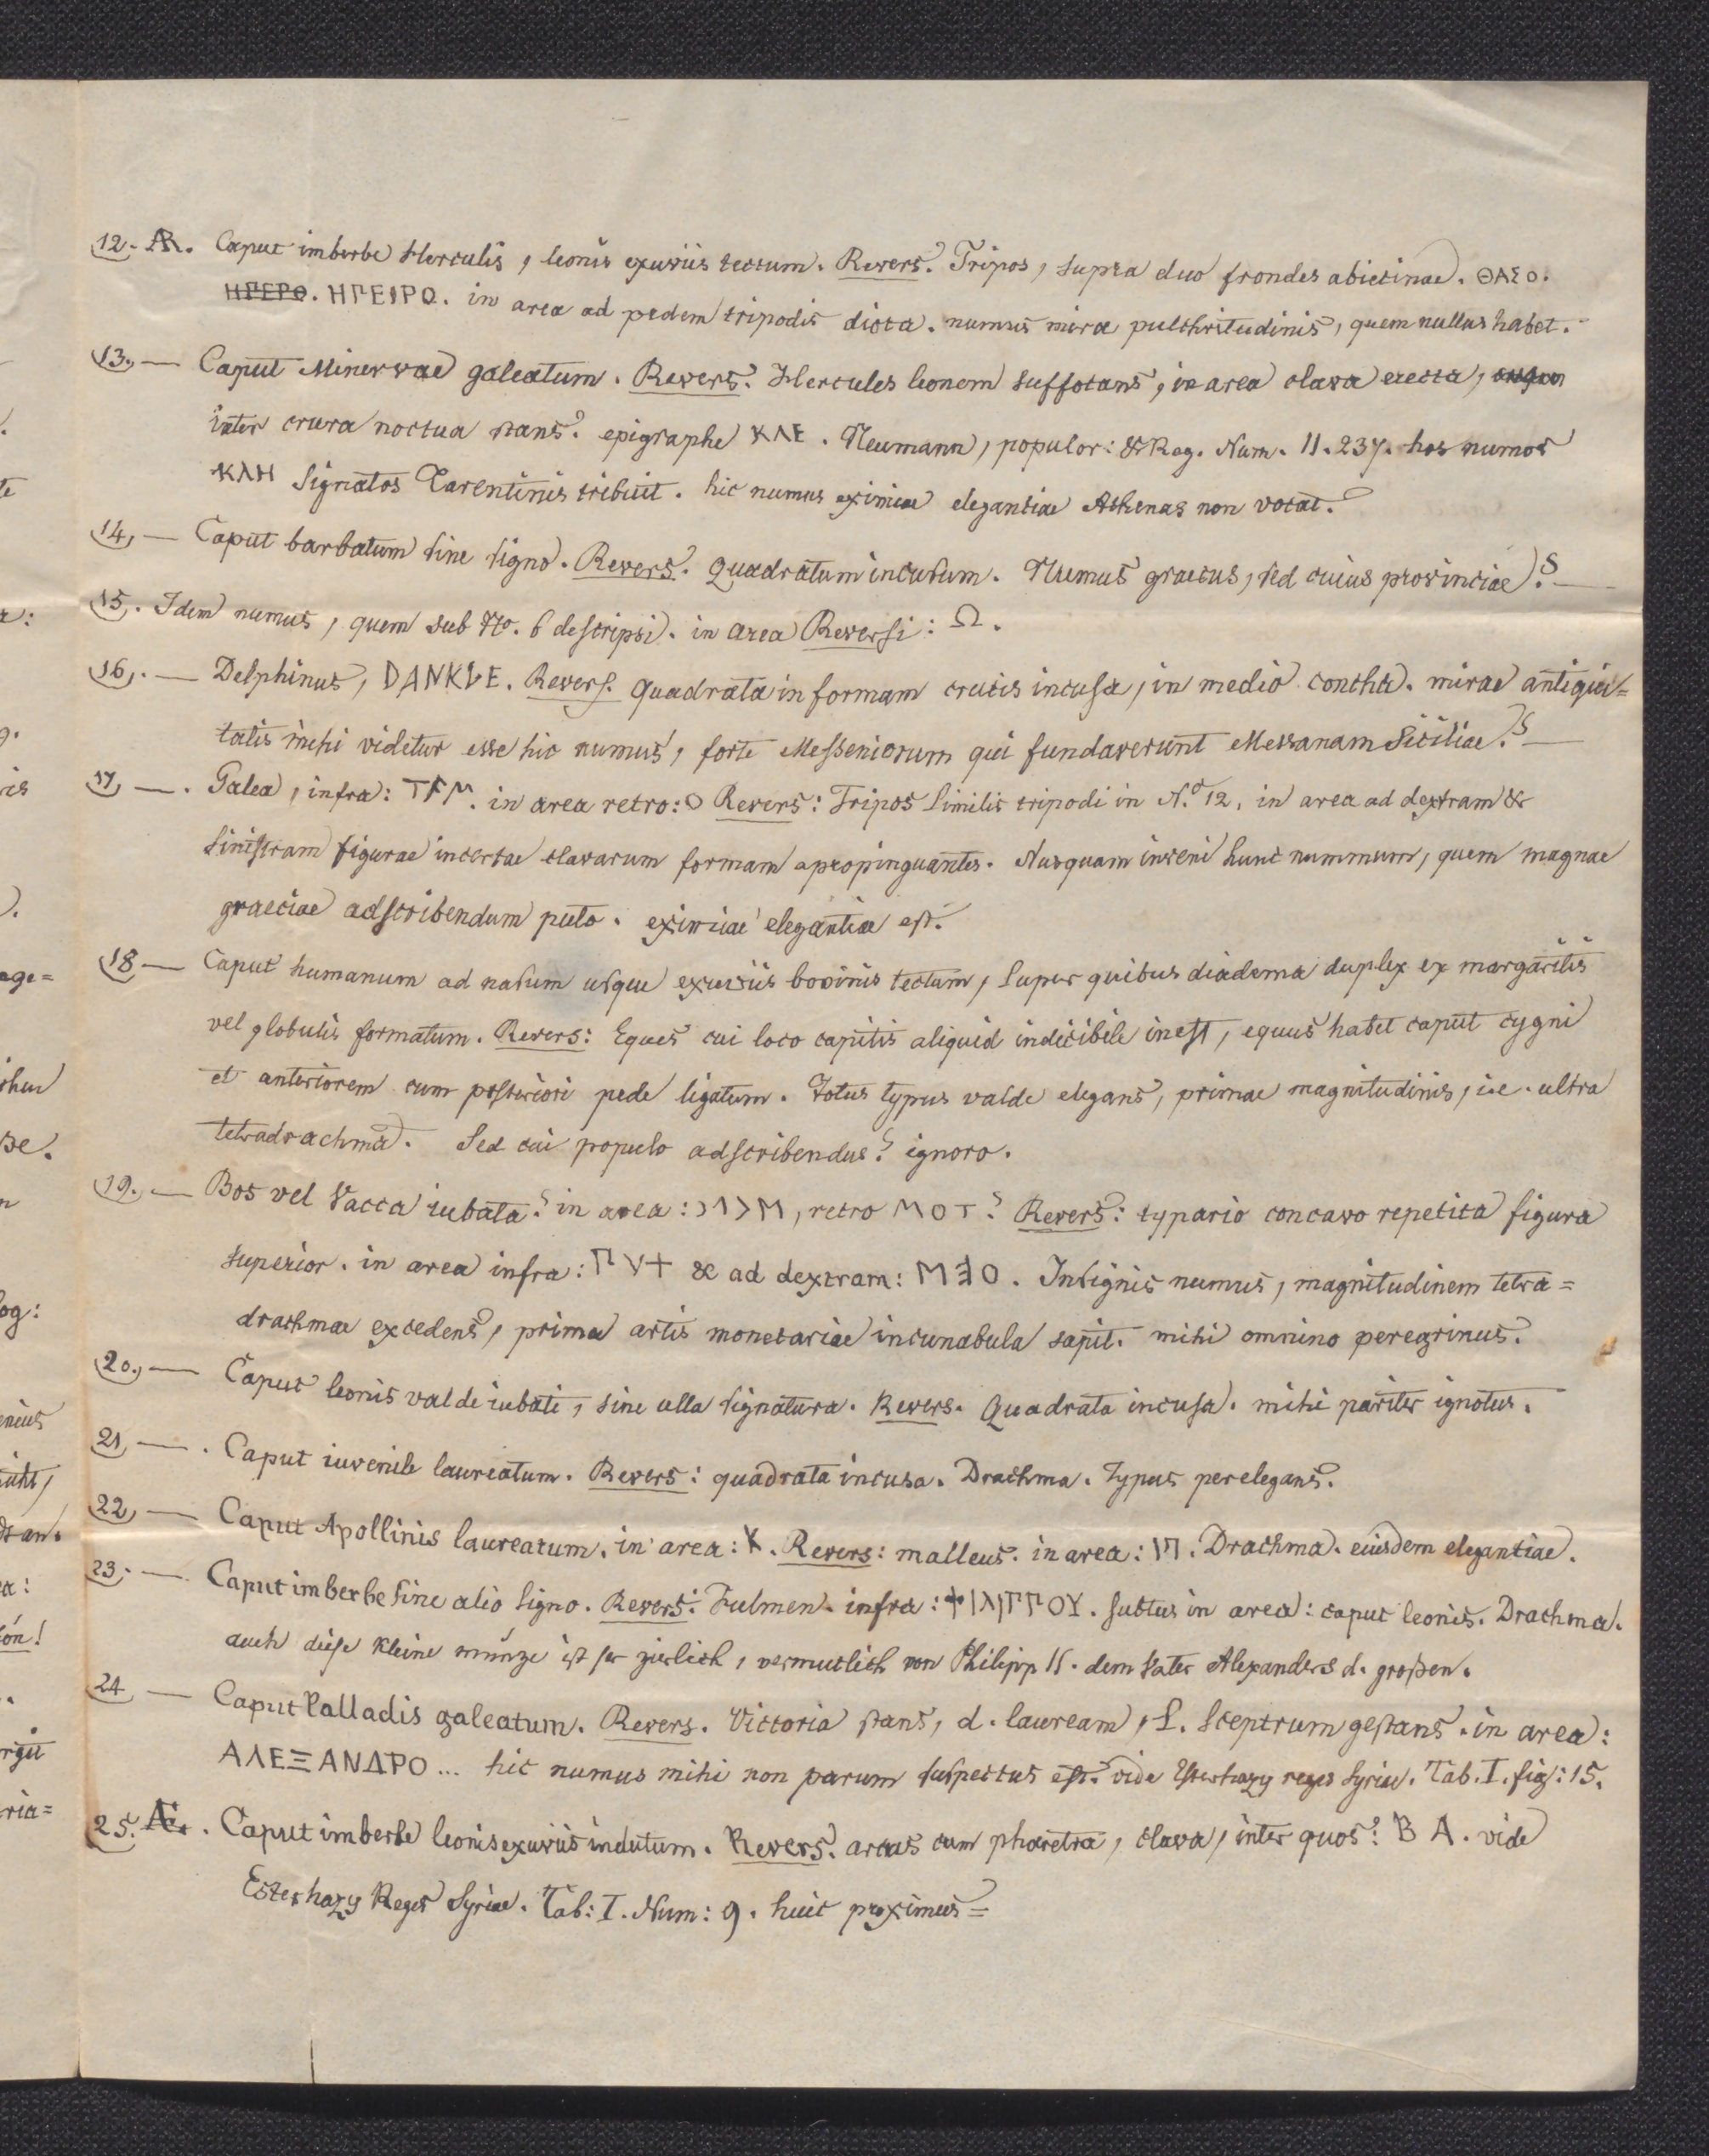 12. AR. Caput imberbe Herculis, leonis exuviis tectum. Revers. Tripos, supra duo frondes abietinae. ΘΑΣΟ.
ΗΠΕΡΟ. ΗΓΕΙΡΟ. in area ad pedem tripodis diota. numus mirae pulchritudinis, quem nullus habet.
13. — Caput Minervae galeatum. Revers. Hercules leonem suffocans, in area clava erecta,
inter crura noctua stans. epigraphe ΚΛΕ. Neumann, populor: & Reg. Num. II. 237. hos numos
ΚΛΗ signatos Tarentinis tribuit. hic numus eximiae elegantiae Athenas non vocat.
14. — Caput barbatum sine signo. Revers. Quadratum incusum. Numus graecus, sed cuius provinciae? —
15. Idem numus, quem sub No. 6 descripsi. in area Reversi: Ω.
16. — Delphinus, DANKLE. Revers. quadrata in formam crucis incusa, in medio concha. mirae antiqui=
tatis mihi videtur esse hic numus, forte Messeniorum qui fundaverunt Messanam Siciliae? —
17. —. Galea, infra: in area retro: O Revers: Tripos similis tripodi in N.o 12. in area ad dextram &
sinistram figurae incertae clavarum formam apropinquantes. Nusquam inveni hunc nummum, quem magnae
graeciae adscribendum puto. eximiae elegantiae est.
18 — Caput humanum ad nasum usque exuviis bovinis tectum, super quibus diadema duplex ex margaritis
vel globulis formatum. Revers: Eques cui loco capitis aliquid indicibile inest, equus habet caput cygni
et anteriorem cum posteriori pede ligatum. Totus typus valde elegans, primae magnitudinis, i.e. ultra
tetradrachma. Sed cui populo adscribendus? ignoro.
19. — Bos vel Vacca iubata? in area: ϽΛ>M, retro MOT? Revers: typario concavo repetita figura
superior. in area infra: ΓV+ & ad dextram: MƎO. Insignis numus, magnitudinem tetra=
drachmae excedens, prima artis monetariae incunabula sapit. mihi omnino peregrinus.
20. — Caput leonis valde iubati, sine ulla signatura. Revers. Quadrata incusa. mihi pariter ignotus.
21 —. Caput iuvenile laureatum. Revers: quadrata incusa. Drachma. Typus perelegans.
22. — Caput Apollinis laureatum. in area: K. Revers: malleus. in area: Drachma. eiusdem elegantiae.
23. — Caput imberbe sine alio signo. Revers: Fulmen. infra: ΦΙΛΙΓΓΟΥ. subtus in area: caput leonis. Drachma.
auch diese kleine münze ist ser zierlich, vermutlich von Philipp II. dem Vater Alexanders d. großen.
24 — Caput Palladis galeatum. Revers. Victoria stans, d. lauream, S. Sceptrum gestans. in area:
ΑΛΕΞΑΝΔΡΟ... hic numus mihi non parum suspectus est. vide Esterhazy reges Syriae. Tab. I. fig: 15.
25. Æ. . Caput imberbe leonis exuviis indutum. Revers. arcus cum pharetra, clava, inter quos: B A. vide
Esterhazy Reges Syriae. Tab: I. Num: 9. huic proximus=